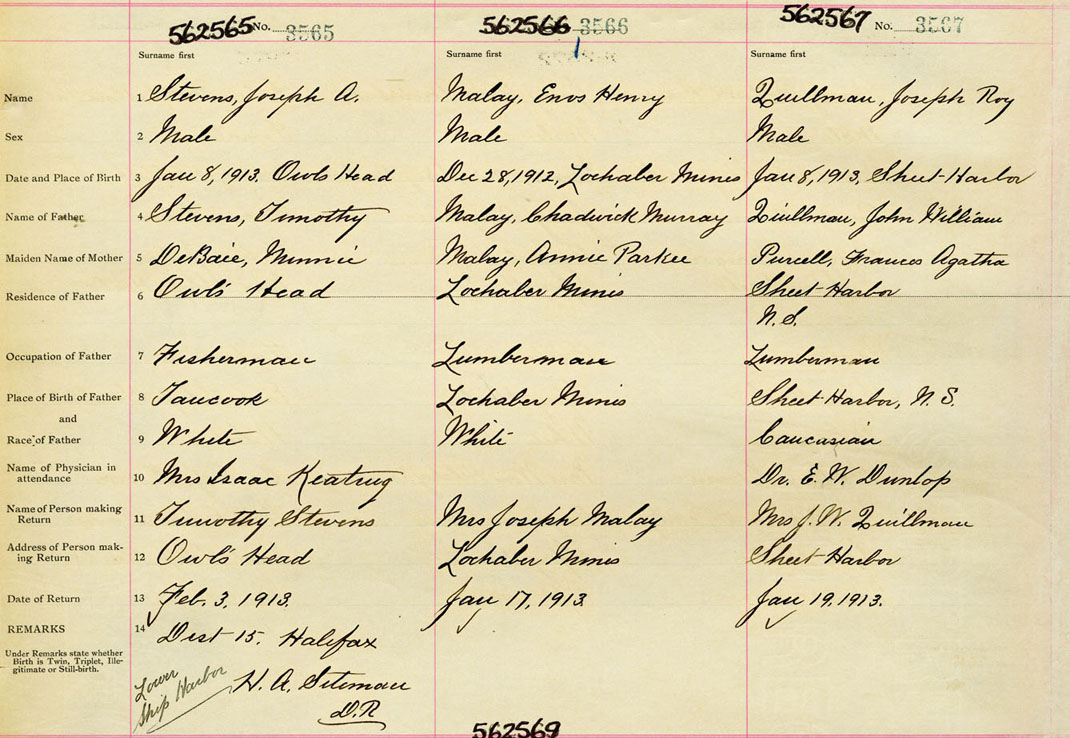 562565 No. 3565 562566 3566 562567 No. 3567
Surname first Surname first Surname first
Name 1 Stevens, Joseph A. Malay, Enos Henry Quillman, Joseph Roy
Sex 2 Male Male Male
Date and Place of Birth 3 Jan 8, 1913. Owls Head Dec 28, 1912, Lochaber Mines Jan 8, 1913, Sheet Harbor
Name of Father 4 Stevens, Timothy Malay, Chadwick Murray Quillman, John William
Maiden Name of Mother 5 DeBaie, Minnie Malay, Annie Parker Purcell, Frances Agatha
Residence of Father 6 Owl's Head Lochaber Mines Sheet Harbor
N.S.
Occupation of Father 7 Fisherman Lumberman Lumberman
Place of Birth of Father 8 Tancook Lochaber Mines Sheet Harbor, N. S.
and
Race of Father 9 White White Caucasian
Name of Physician in
attendance 10 Mrs Isaac Keating Dr. E. W. Dunlop
Name of Person making
Return 11 Timothy Stevens Mrs Joseph Malay Mrs J. W. Quillman
Address of Person mak-
ing Return 12 Owl's Head Lochaber Mines Sheet Harbor
Date of Return 13 Feb. 3, 1913. Jan 17, 1913 Jan 19, 1913.
REMARKS 14 Dist 15. Halifax
Under Remarks state whether
Birth is Twin, Triplet, Ille-
gitimate or Still-birth.
Lower
Ship Harbor
H. A. Siteman
D.R
562569